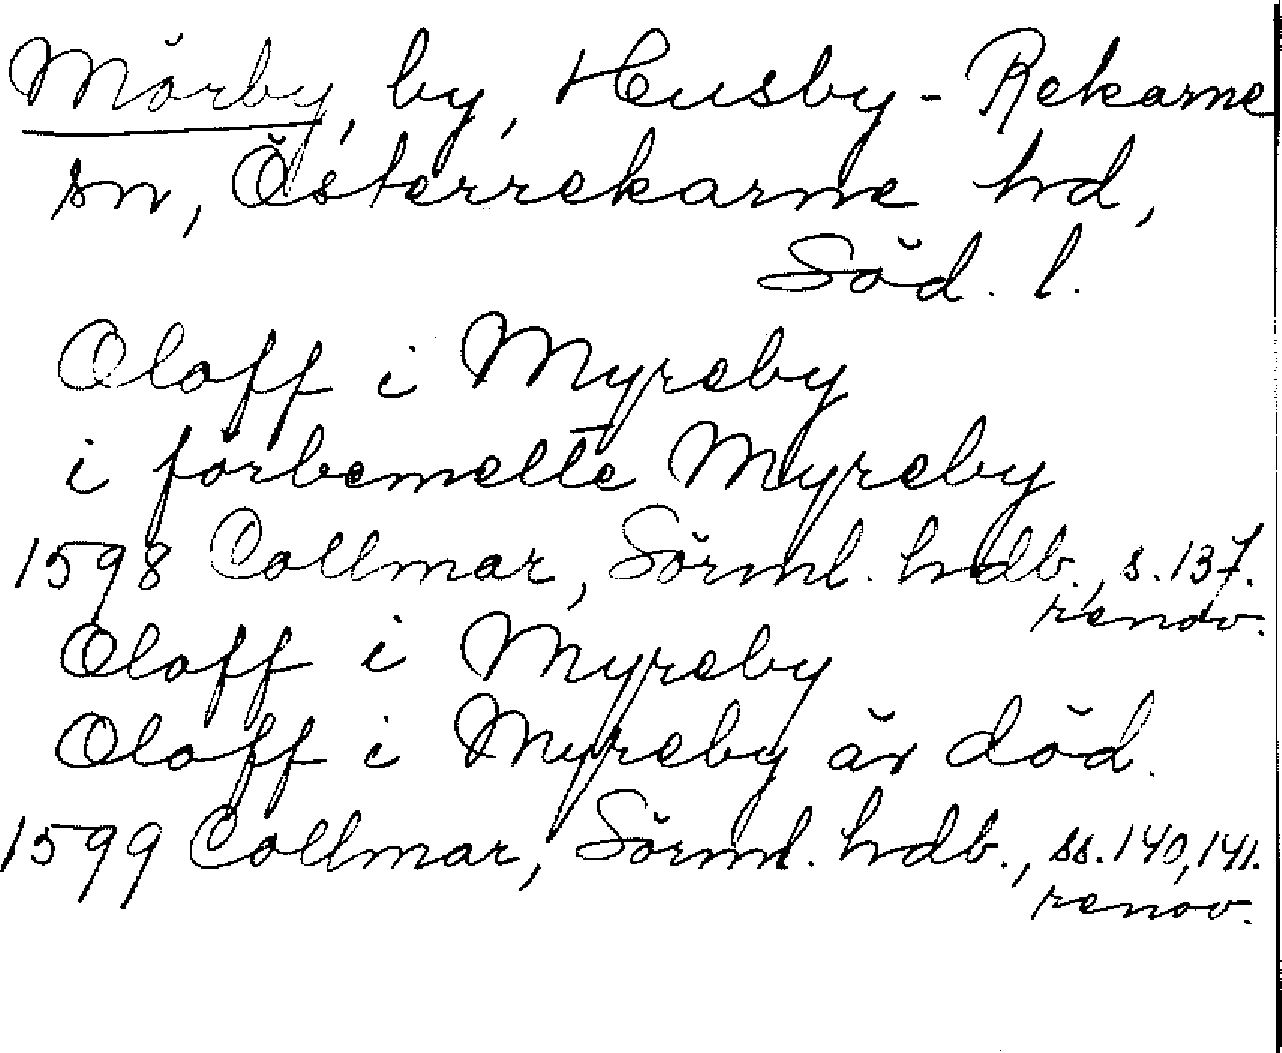 Mörby, by, Husby-Rekarne
sn, Österrekarne hd,
Söd. l.
Oloff i Myreby
i forbemelte Myreby
1598 Collmar, Sörml. hdb., s. 137.
renov.
Oloff i Myreby
Oloff i Myreby är död.
1599 Collmar, Sörml. hdb., ss. 140, 141.
renov.